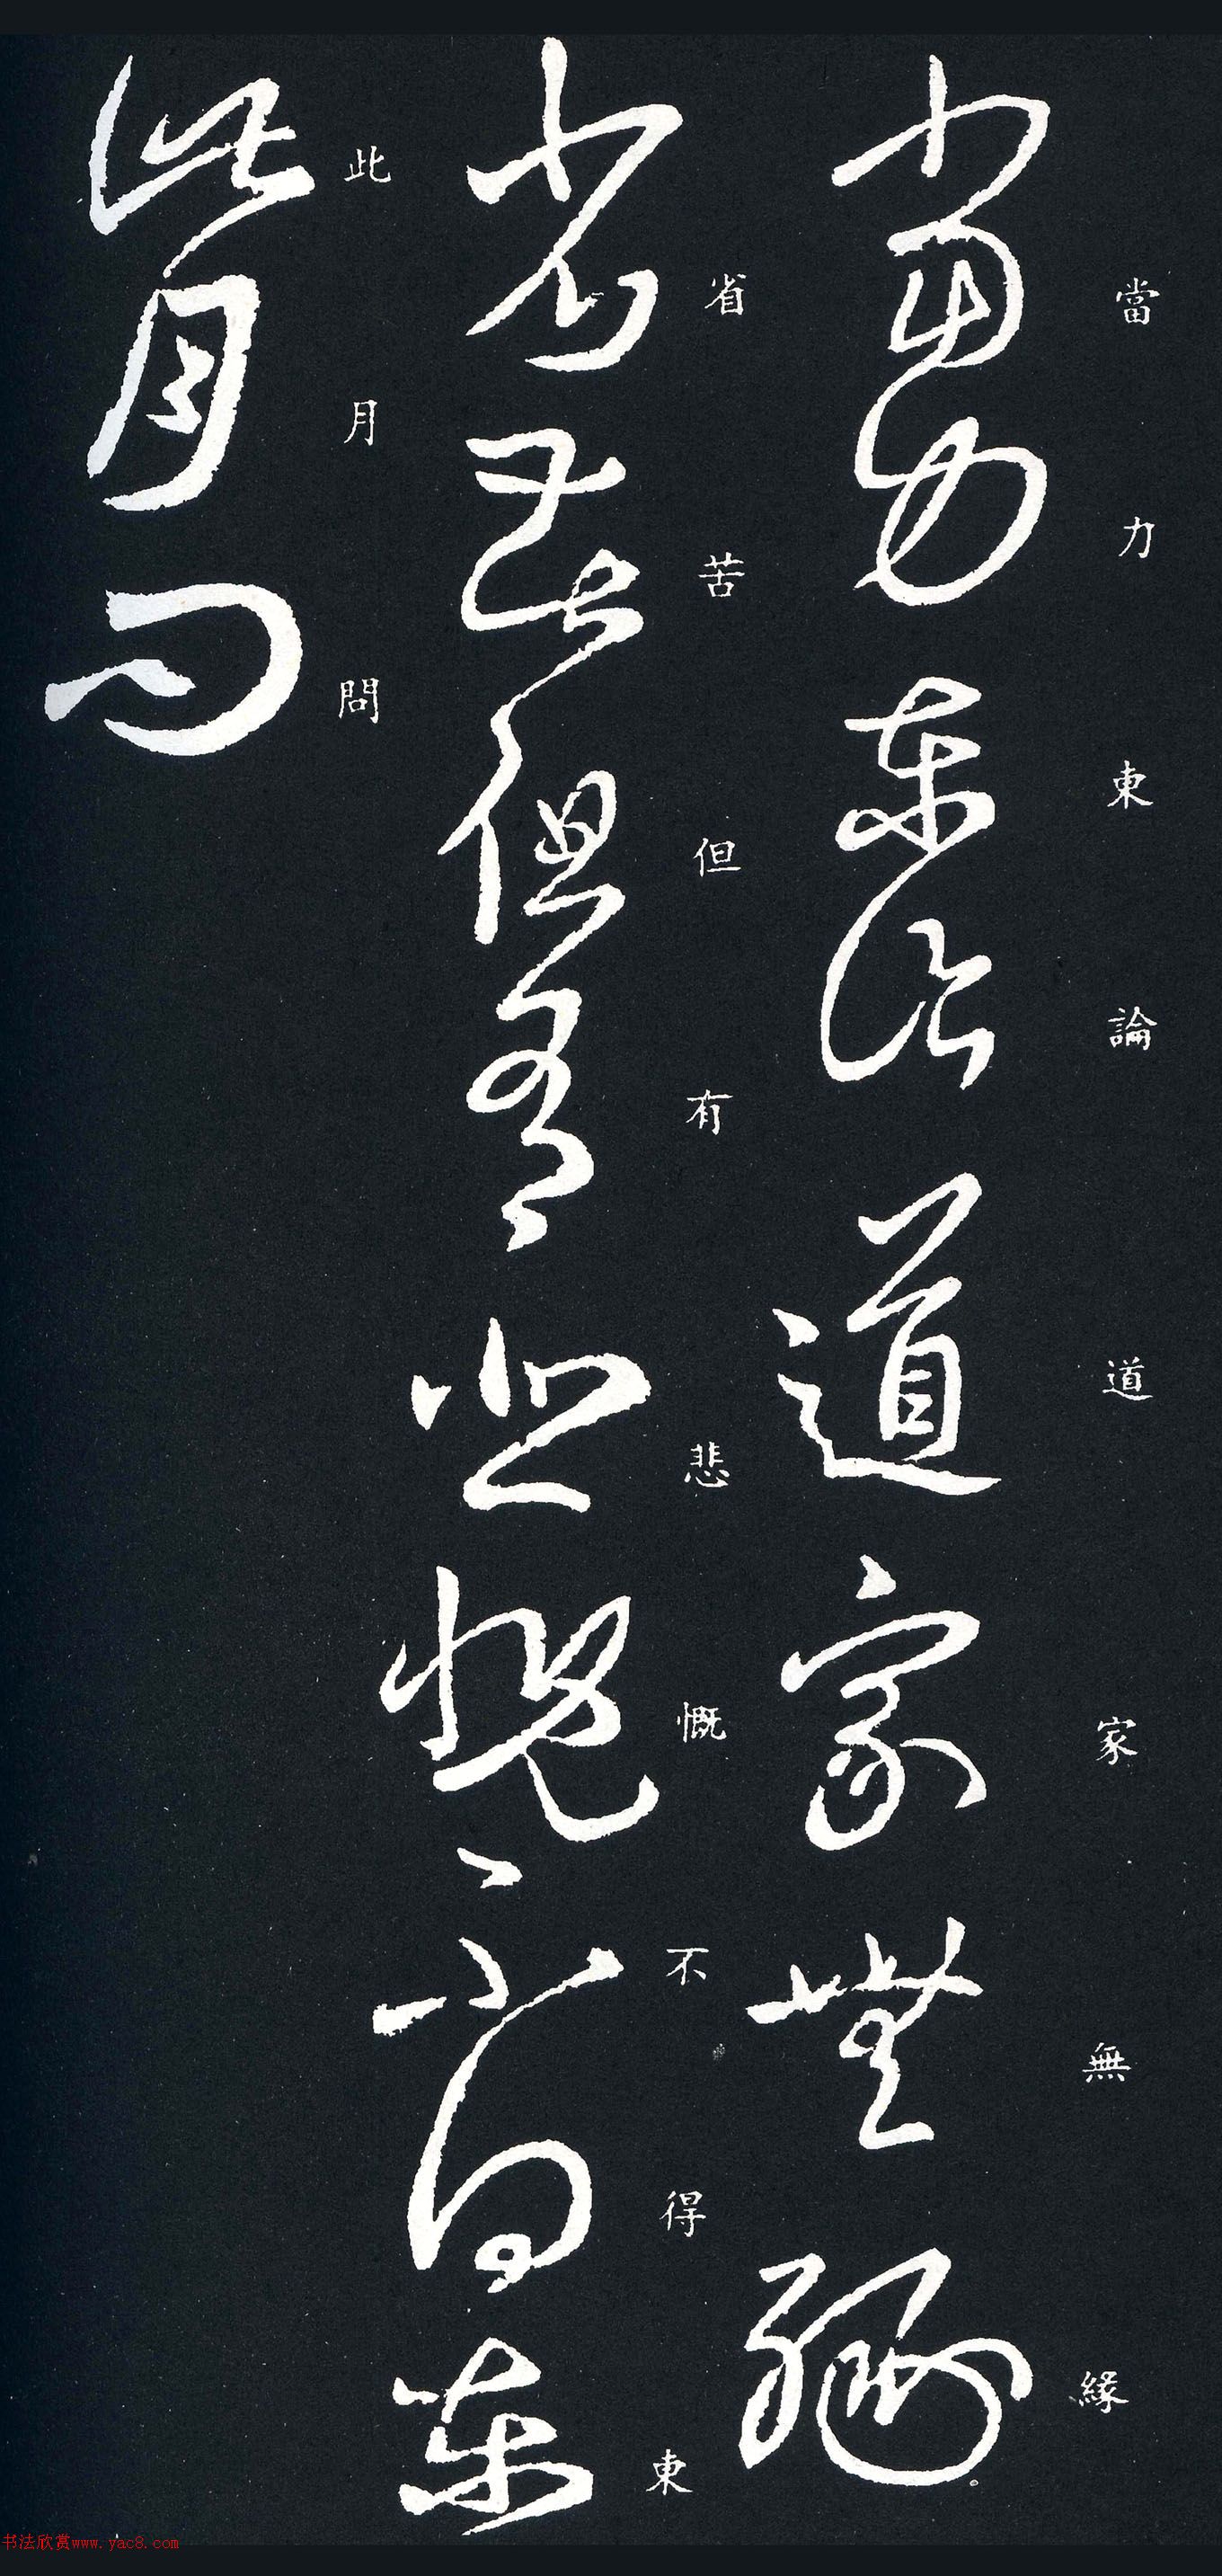 當力東論道家無緣
省苦但有悲慨不得東
此月問
書法欣赏www.yac8.com